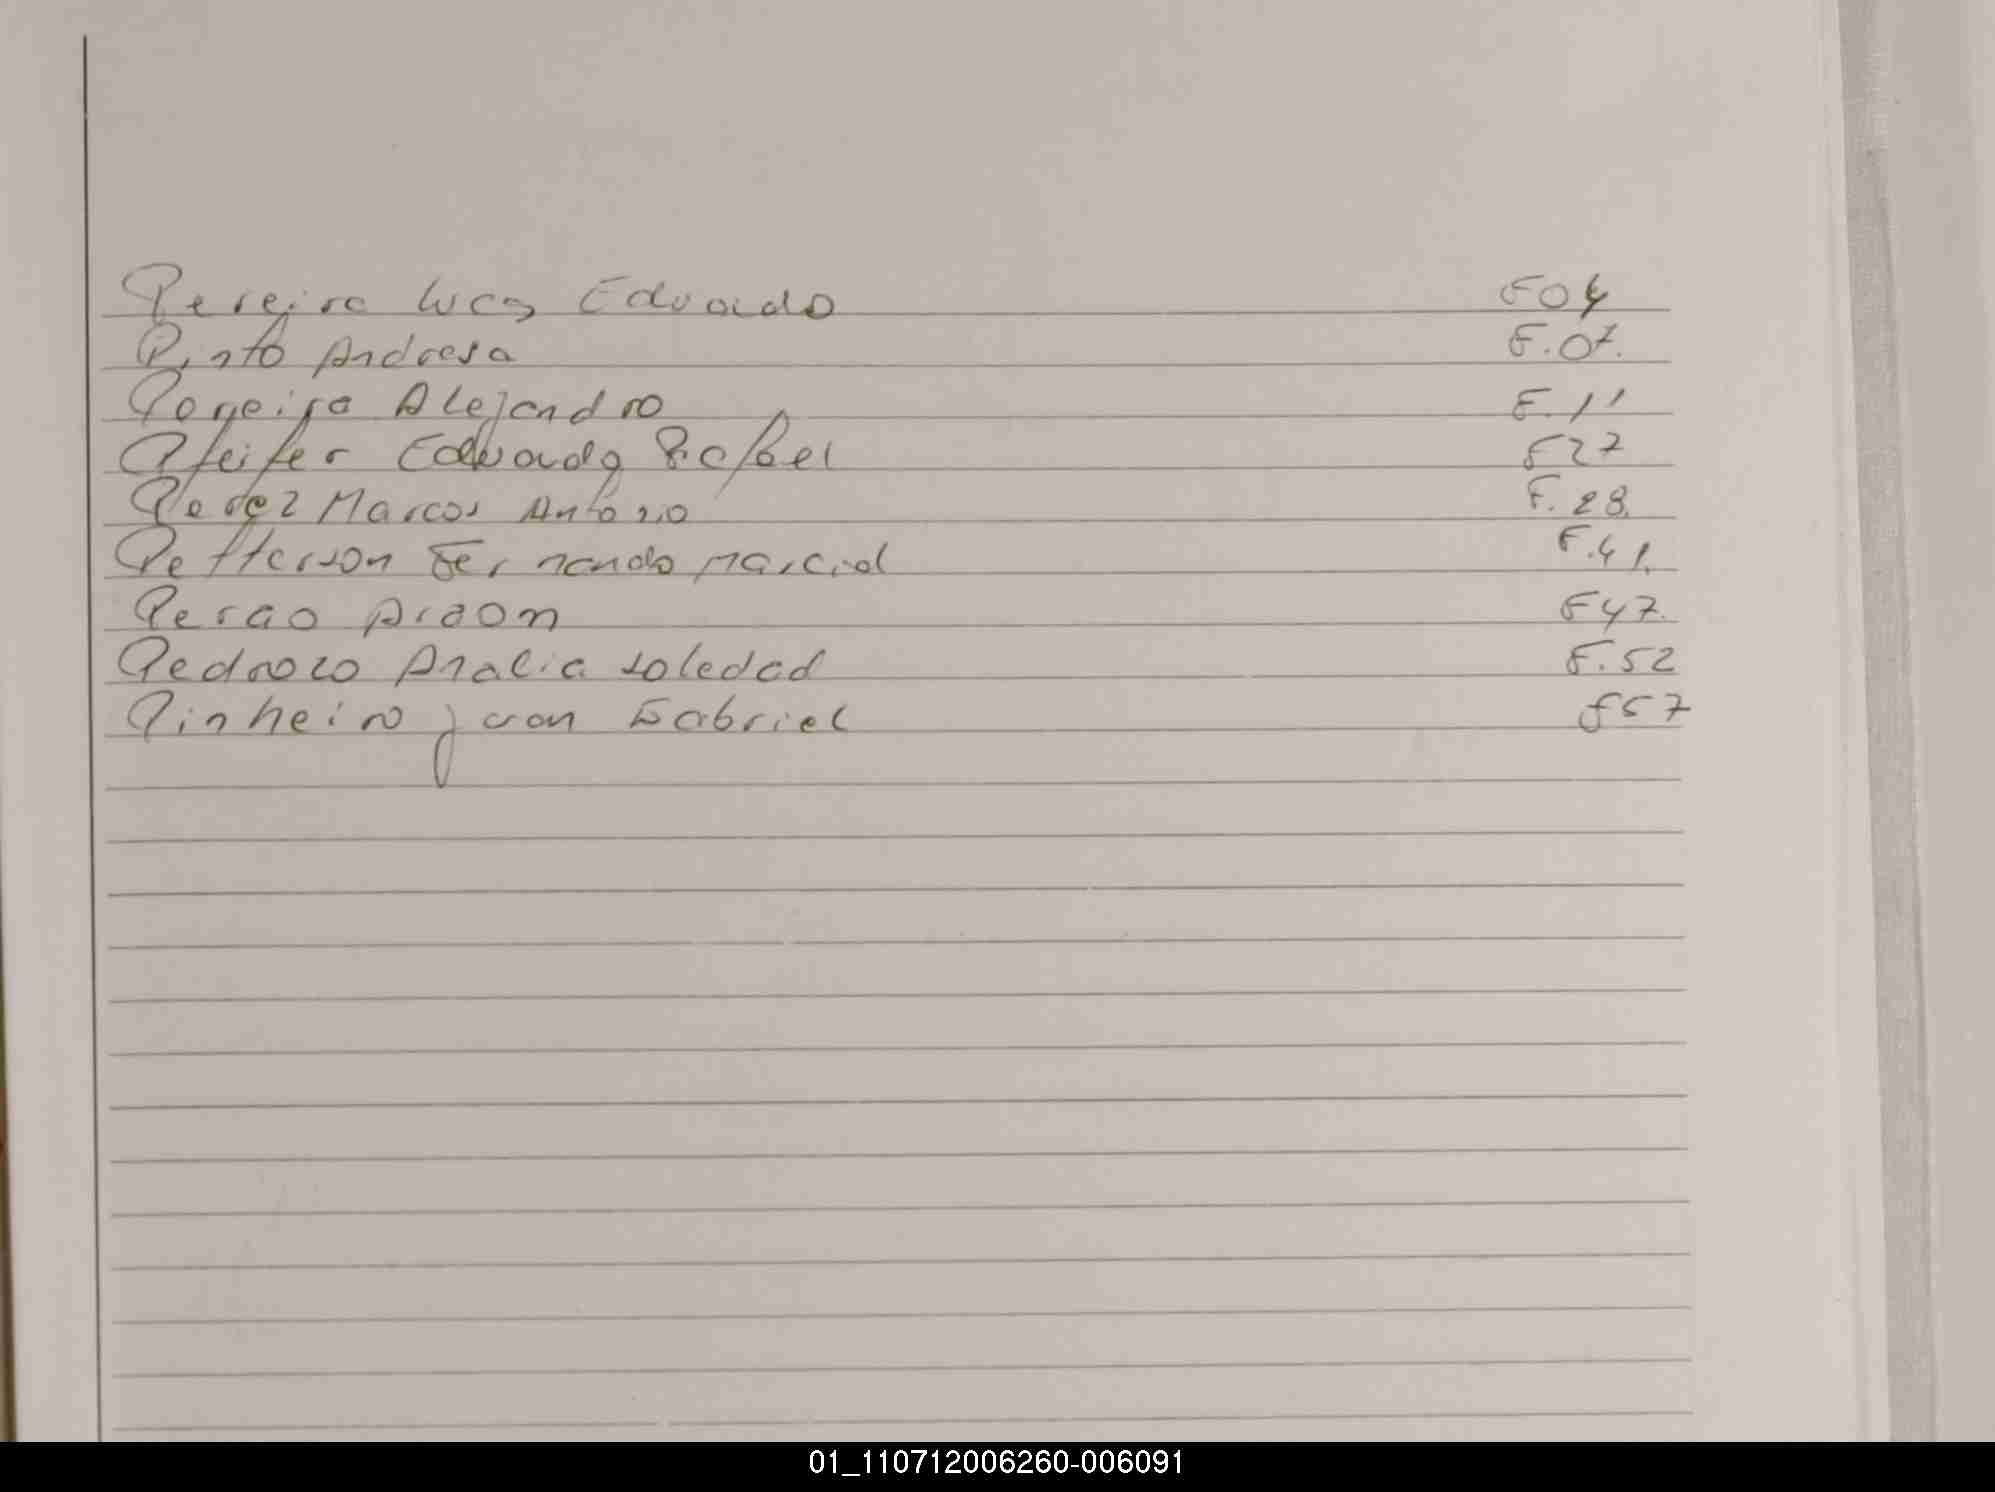 Pereira Lucas Eduardo F04
Pinto Andresa F.07.
Alejandro F.11
Pfeifer Eduardo Rafael F27
Perez Marcos Antonio F.28.
Petterson Fernando Marcial F.41.
F47.
Pedrozo Analia Soledad F.52
Pinheiro Juan Gabriel F57
01_110712006260-006091